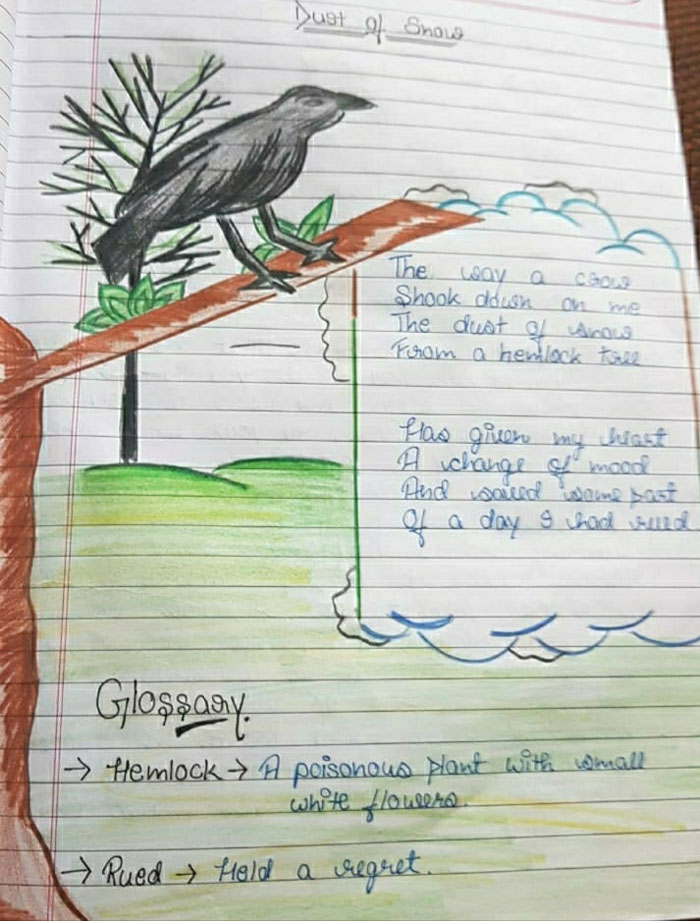 Dust of Snow
The way a crow
Shook down on me
The dust of snow
From a hemlock tree
Has given my heart
A change of mood
And saved some part
Of a day I had rued
Glossary.
→ Hemlock → A poisonous plant with small
white flowers.
→ Rued → Held a regret.